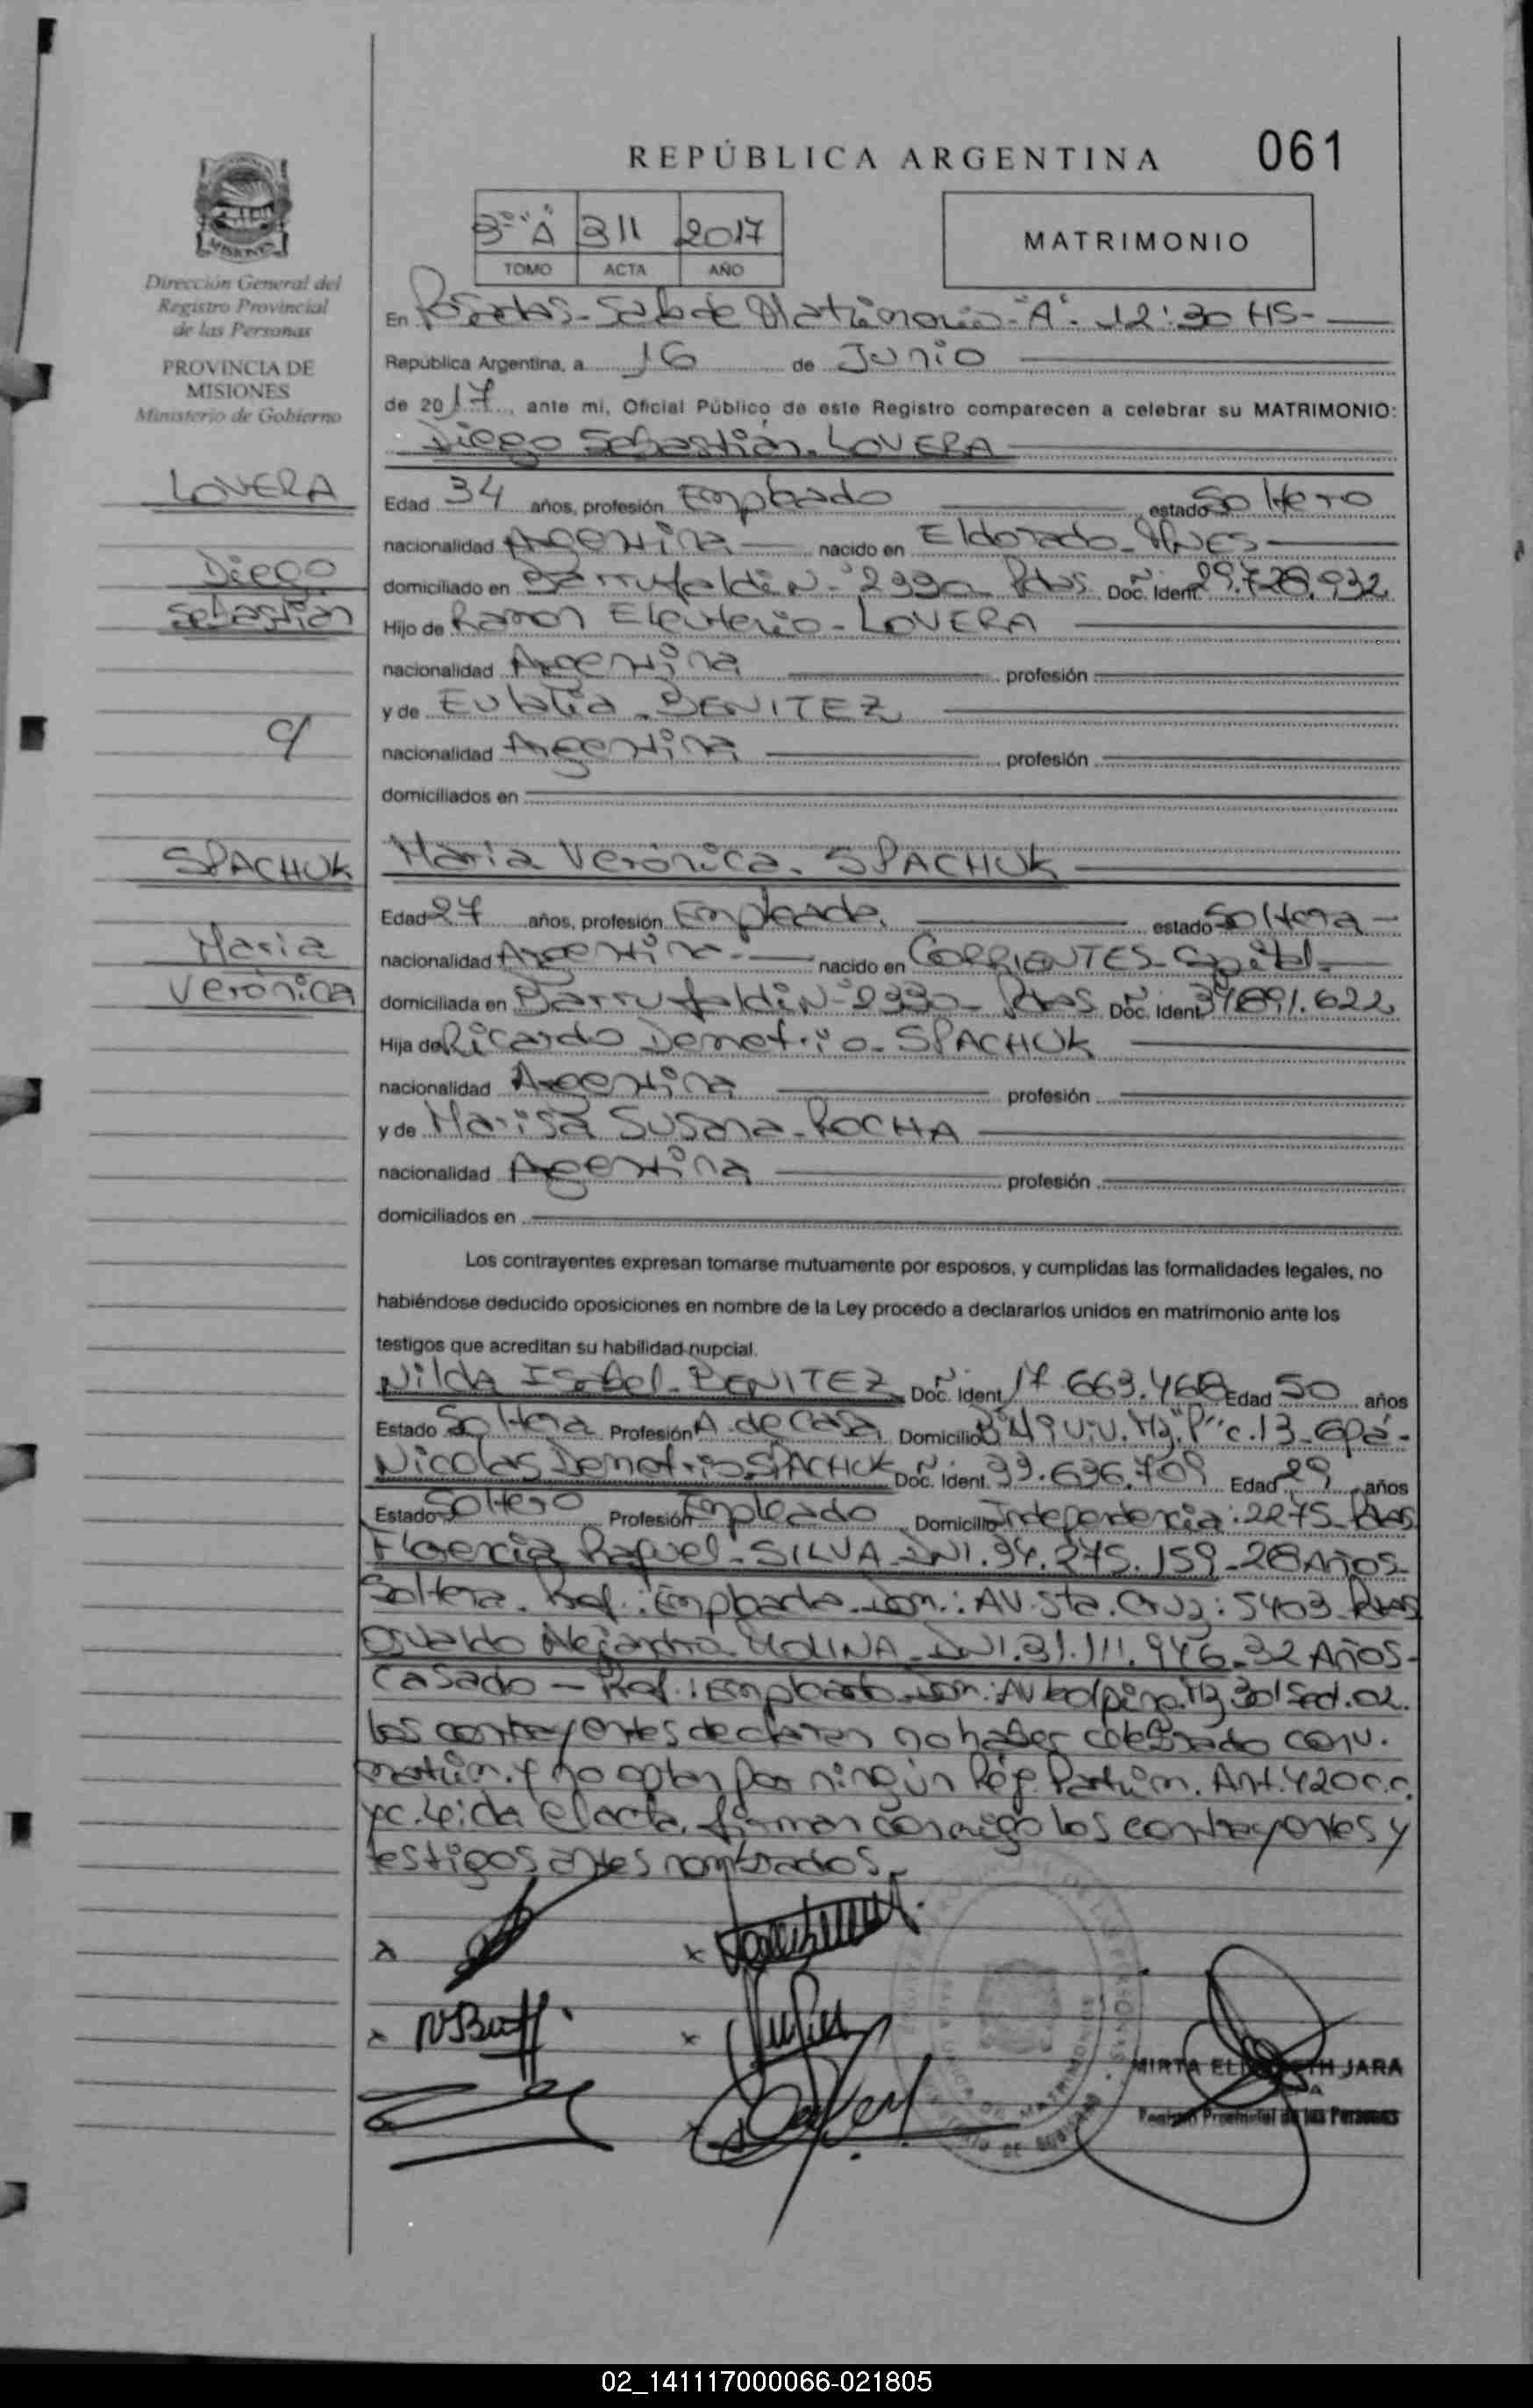 REPÚBLICA ARGENTINA 061
3º "A" 311 2017
TOMO ACTA AÑO
MATRIMONIO
MISIONES
Dirección General del
Registro Provincial
de las Personas
PROVINCIA DE
MISIONES
Ministerio de Gobierno
En Posadas - Sala de Matrimonio - "A" - 12:30 HS -
República Argentina, a 16 de Junio
de 2017 ante mi, Oficial Público de este Registro comparecen a celebrar su MATRIMONIO:
Diego Sebastián - LOVERA
LOVERA
Diego
Sebastián
c/
SPACHUK
Maria
Verónica
Edad 34 años, profesión Empleado estado Soltero
nacionalidad Argentina nacido en Eldorado - Mnes
domiciliado en Barrufaldi Nº 2990 - Pdas Doc. Ident. 29.728.932
Hijo de Ramon Eleuterio - LOVERA
nacionalidad Argentina profesión
y de Eulalia - BENITEZ
nacionalidad Argentina profesión
domiciliados en
Maria Verónica - SPACHUK
Edad 27 años, profesión Empleada estado Soltera -
nacionalidad Argentina - nacido en CORRIENTES - Capital -
domiciliada en Barrufaldi Nº 2990 - Pdas Doc. Ident. 34.891.622
Hija de Ricardo Demetrio - SPACHUK
nacionalidad Argentina profesión
y de Marisa Susana - ROCHA
nacionalidad Argentina profesión
domiciliados en
Los contrayentes expresan tomarse mutuamente por esposos, y cumplidas las formalidades legales, no
habiéndose deducido oposiciones en nombre de la Ley procedo a declararlos unidos en matrimonio ante los
testigos que acreditan su habilidad nupcial.
Nilda Isabel - BENITEZ Doc. Ident. 17.663.468 Edad 50 años
Estado Soltera Profesión A. de casa Domicilio 49 Viv. Mz. "P" c. 13 - Gpá -
Nicolas Demetrio SPACHUK Doc. Ident. 33.696.709 Edad 29 años
Estado Soltero Profesión Empleado Domicilio Independencia: 2275 - Pdas
Florencia Raquel - SILVA - DNI. 34.275.159 - 28 Años -
Soltera - Prof.: Empleada - Dom.: AV. Sta. Cruz: 5403 - Pdas
Osvaldo Alejandro - MOLINA - DNI. 31.111.946 - 32 Años -
Casado - Prof.: Empleado - Dom.: AV Mz 301 Secc. 02.
los contrayentes declaran no haber celebrado conv.
matrim. y no optan por ningún Rég. Patrim. Art. 420 C.C.
yC. Leida el acta, firman conmigo los contrayentes y
testigos antes nombrados.
MIRTA JARA
Registro Provincial de las Personas
02_141117000066-021805